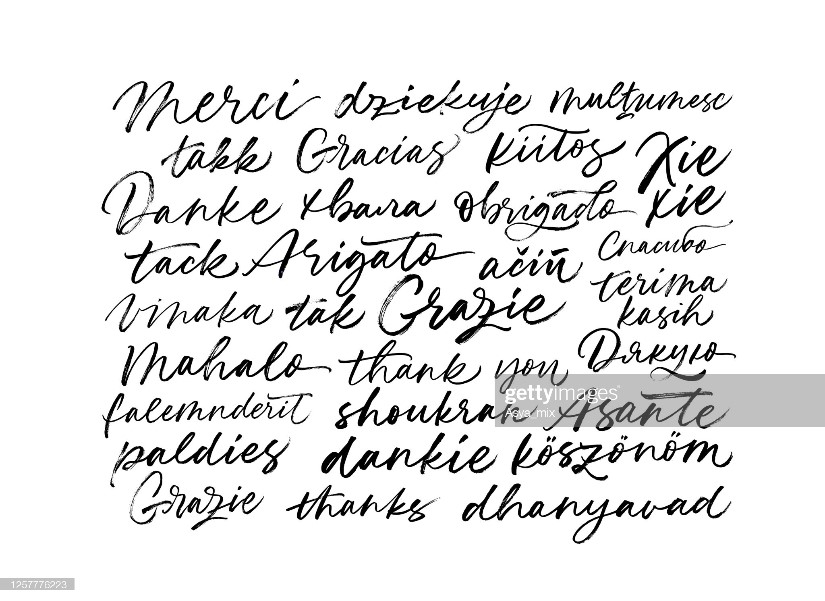 Merci dziekuje mulţumesc
takk Gracias kiitos Xie
Danke хвала obrigado xie
tack Arigato ačiū Спасибо
vinaka tak Grazie terima
kasih
Mahalo thank you Дякую
gettyimages
Asya_mix
falemnderit shoukran Asante
paldies dankie köszönöm
Grazie thanks dhanyavad
1257776223